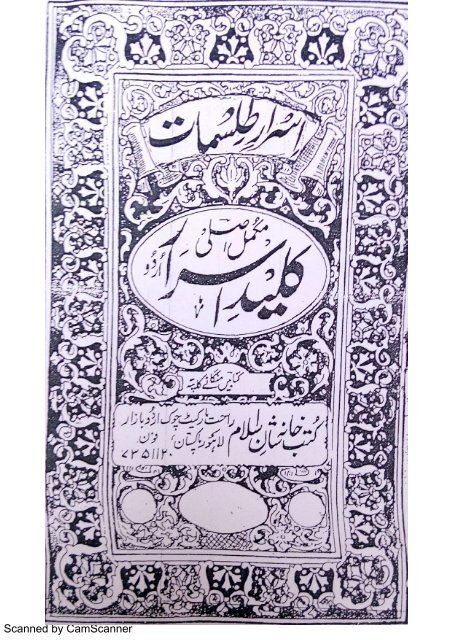 اسرار طلسمات
مکمل اصلی
کلید اسرار
اُردو
کتابیں منگانے کا پتہ
کتب خانہ شان اسلام راحت مارکیٹ چوک اردو بازار
لاہور پاکستان فون
۷۳۵۱۱۲۰
Scanned by CamScanner